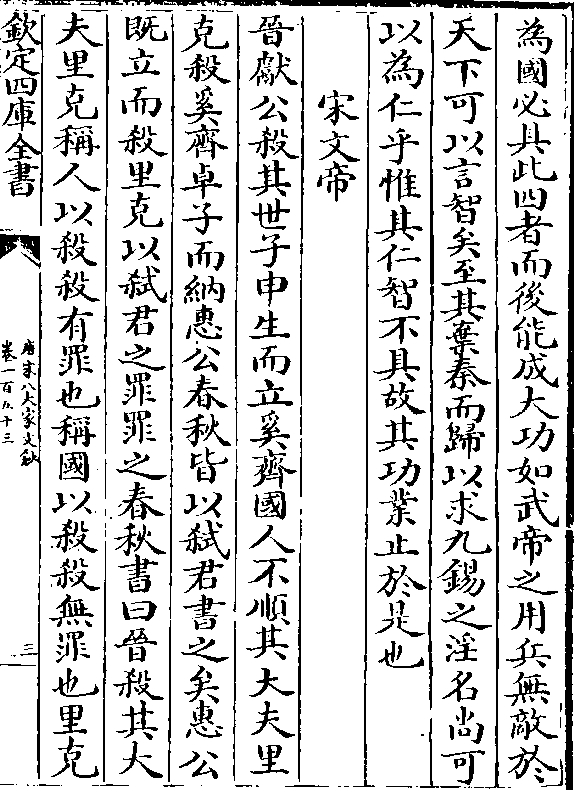 為國必具此四者而後能成大功如武帝之用兵無敵於
天下可以言智矣至其棄秦而歸以求九錫之淫名尚可
以為仁乎惟其仁智不具故其功業止於是也
宋文帝
晉獻公殺其世子申生而立奚齊國人不順其大夫里
克殺奚齊卓子而納惠公春秋皆以弑君書之矣惠公
既立而殺里克以弑君之罪罪之春秋書曰晉殺其大
夫里克稱人以殺殺有罪也稱國以殺殺無罪也里克
欽定四庫全書
唐宋八大家文鈔
卷一百五十三
三